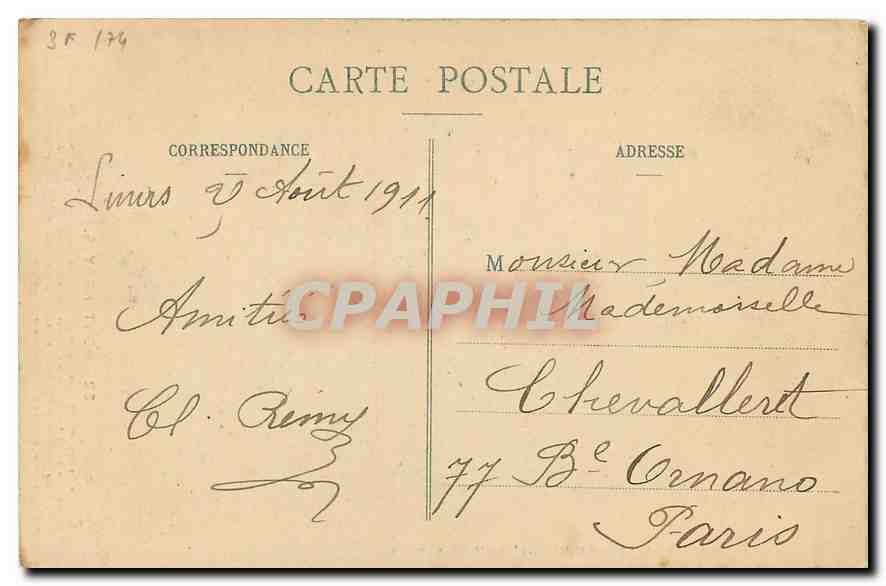 3F 174
CARTE POSTALE
CORRESPONDANCE
ADRESSE
Août 1911
Amitiés
Cl. Rémy
Monsieur, Madame
Mademoiselle
Chevalleret
77 Bd Ornano
Paris
CPAPHIL